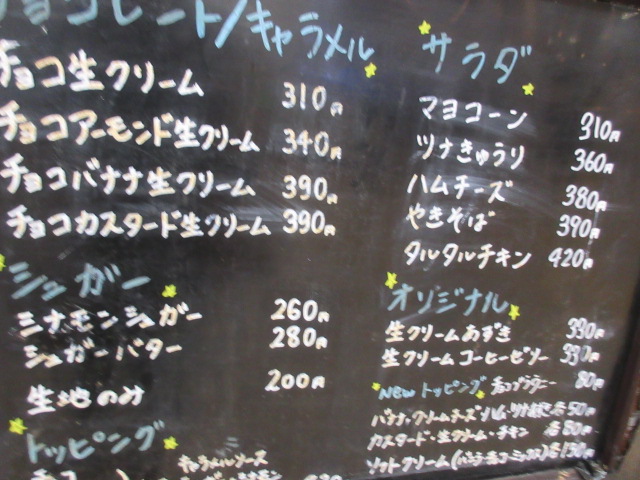 チョコレート/キャラメル
チョコ生クリーム 310円
チョコアーモンド生クリーム 340円
チョコバナナ生クリーム 390円
チョコカスタード生クリーム 390円
シュガー
シナモンシュガー 260円
シュガーバター 280円
生地のみ 200円
トッピング
キャラメルソース
サラダ
マヨコーン 310円
ツナきゅうり 360円
ハムチーズ 380円
やきそば 390円
タルタルチキン 420円
オリジナル
生クリームあずき 390円
生クリームコーヒーゼリー 390円
NEWトッピング チョコブラウニー 80円
バナナ・クリームチーズ・ハム・ツナ 各50円
カスタード・生クリーム・チキン 各80円
ソフトクリーム(バニラ・チョコ・ミックス)各130円